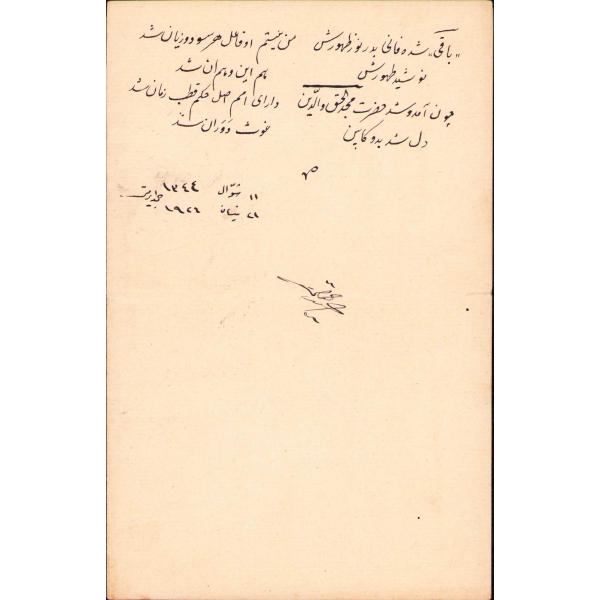 «باقی» شده فانی بدر نور ظهورش من نیستم او قائل هر سود و زیان شد
نوشید ظهورش هم این و هم آن شد
چون آمد و شد حضرت مجد الحق والدین دارای امم اصل حکم قطب زمان شد
دل شد بدو غوث دوران شد
١١ شوال ١٣٤٤
٢١ نیسان ١٩٢٦